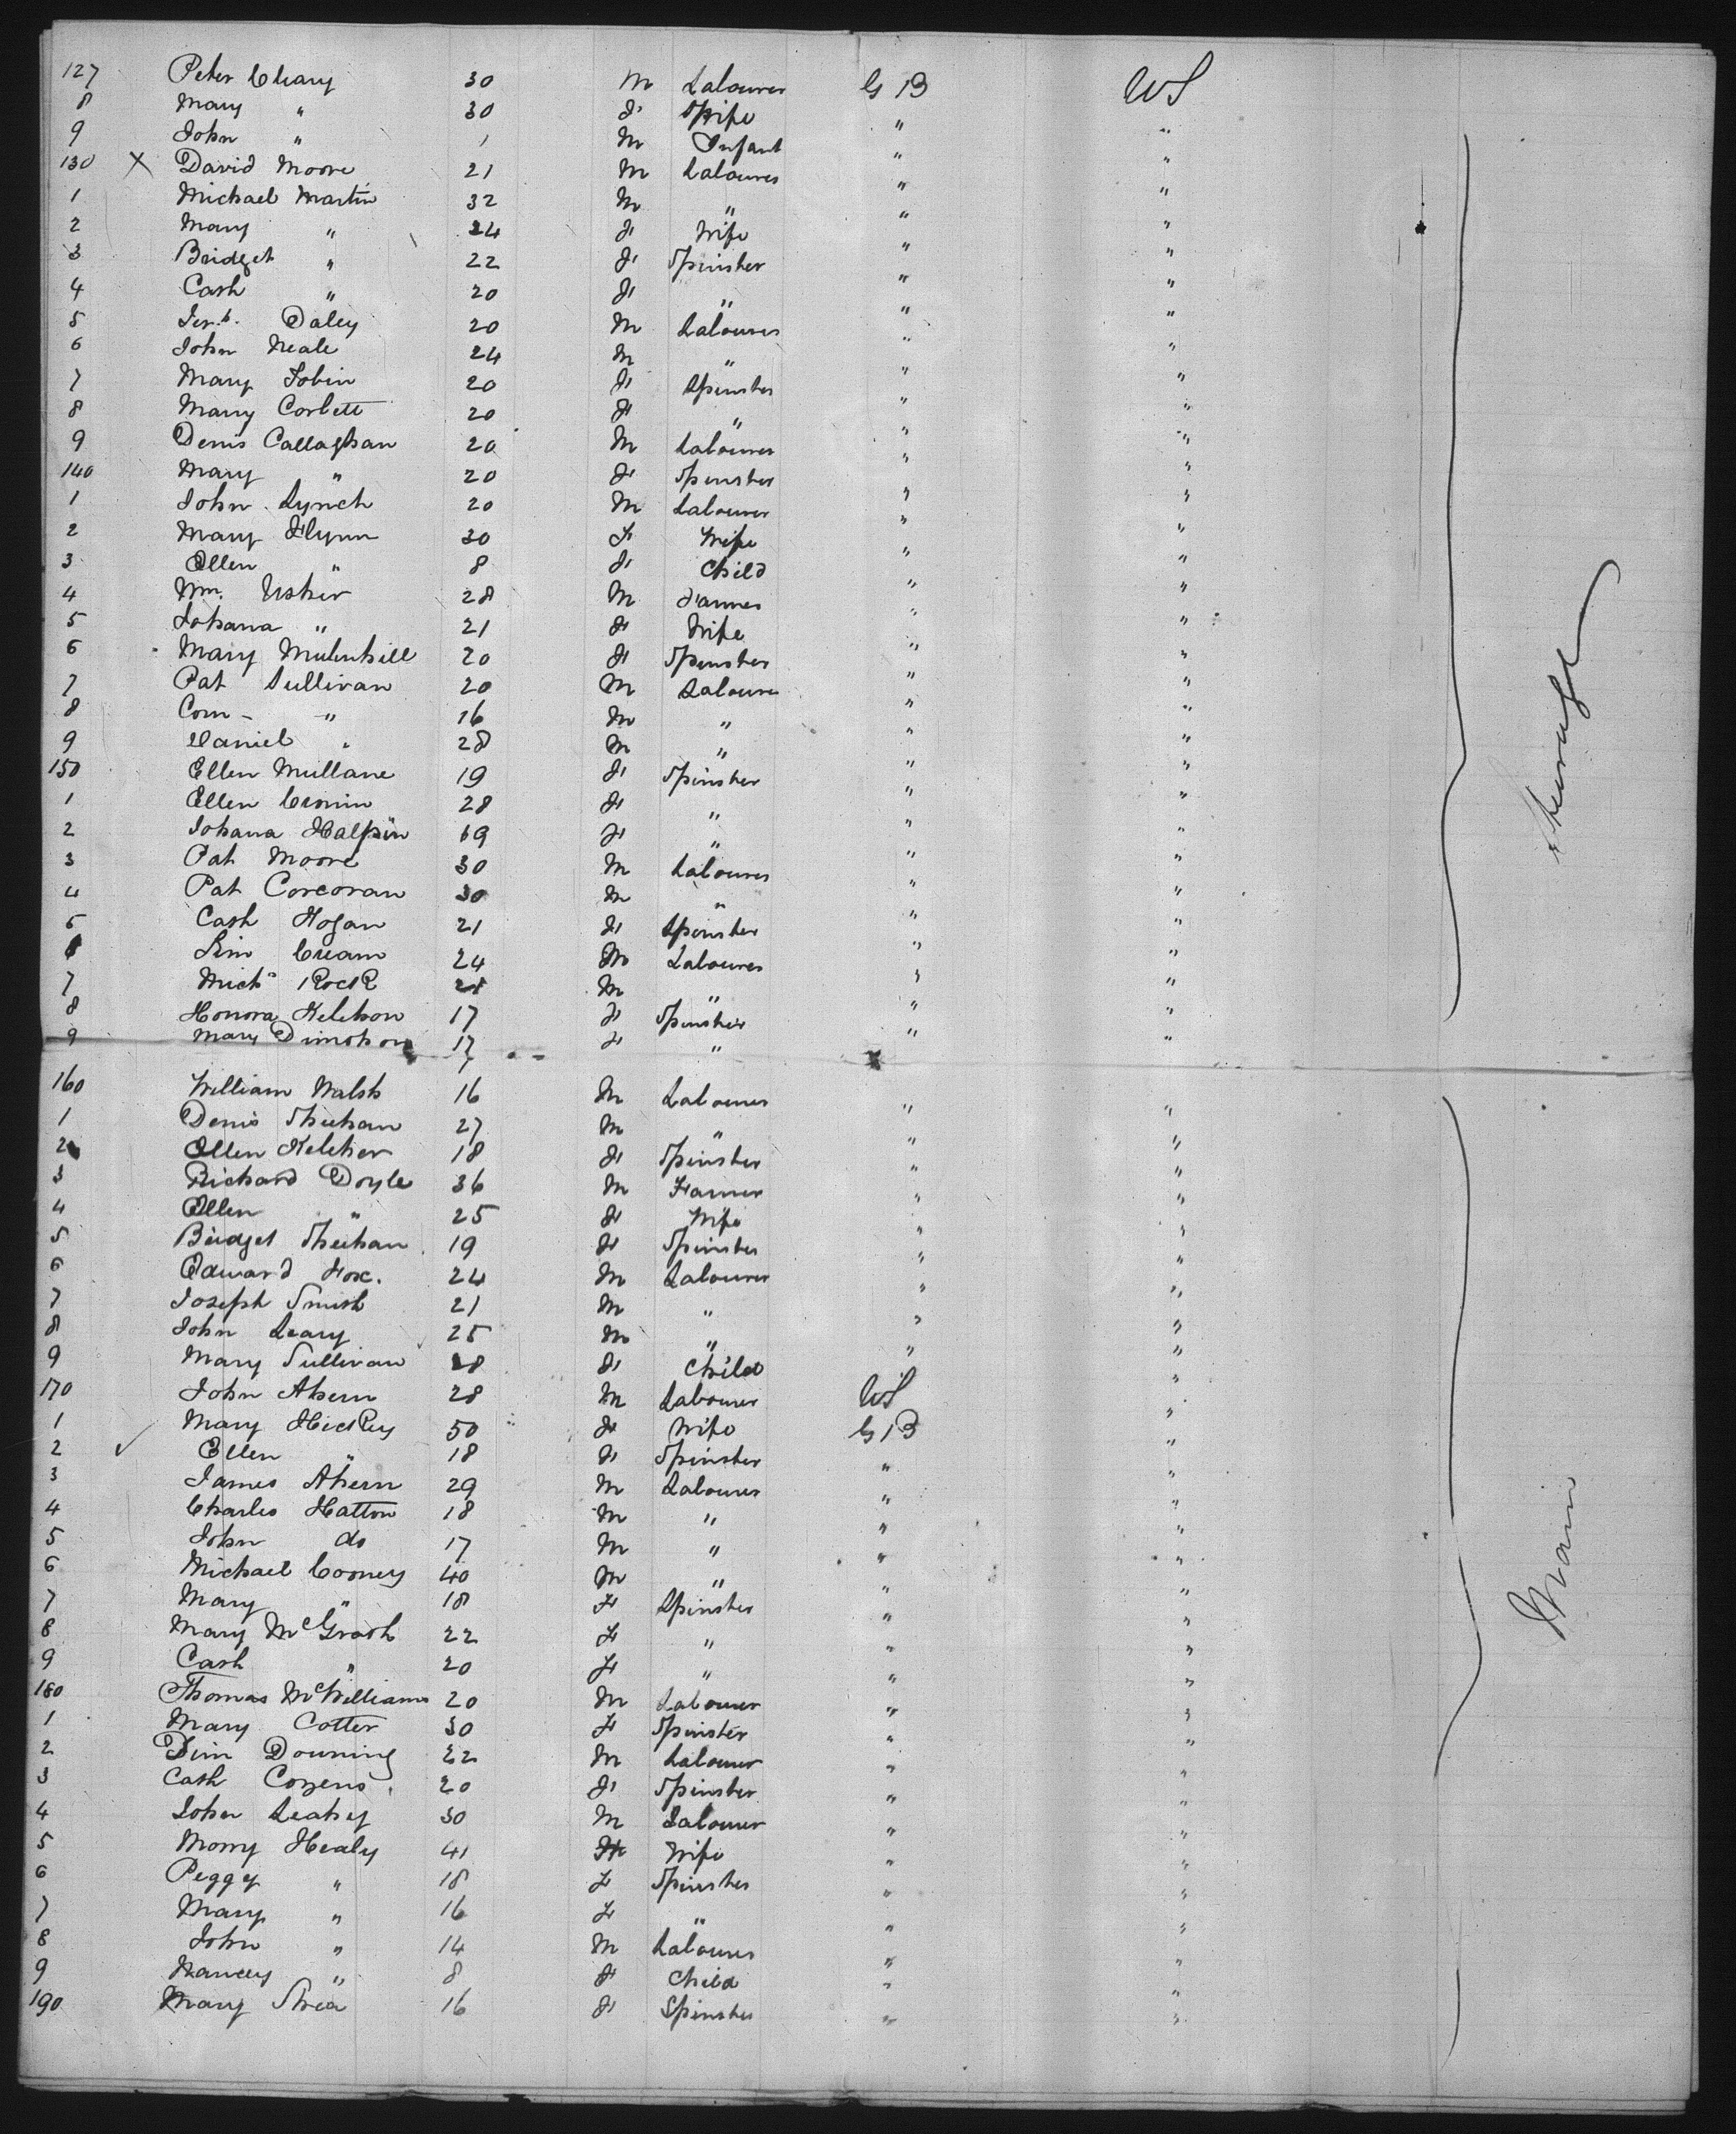 127 Peter Cleary 30 M Labourer GB US
8 Mary " 30 F Wife " "
9 John " 1 M Infant " "
130 X David Moore 21 M Labourer " "
1 Michael Martin 32 M " " "
2 Mary " 24 F Wife " "
3 Bridget " 22 F Spinster " "
4 Cath " 20 F " " "
5 Daley 20 M Labourer " "
6 John Neale 24 M " " "
7 Mary Tobin 20 F Spinster " "
8 Mary Corbett 20 F " " "
9 Denis Callaghan 20 M Labourer " "
140 Mary " 20 F Spinster " "
1 John Lynch 20 M Labourer " "
2 Mary Flynn 30 F Wife " "
3 Ellen " 8 F Child " "
4 Wm. Usher 28 M Farmer " "
5 Johana " 21 F Wife " "
6 Mary Mulenhill 20 F Spinster " "
7 Pat Sullivan 20 M Labourer " "
8 Corn - " 16 M " " "
9 Daniel " 28 M " " "
150 Ellen Mullane 19 F Spinster " "
1 Ellen Cronin 28 F " " "
2 Johana Halpin 19 F " " "
3 Pat Moore 30 M Labourer " "
4 Pat Corcoran 30 M " " "
5 Cath Hogan 21 F Spinster " "
6 Cream 24 M Labourer " "
7 Mich Rock M " " "
8 Honora Kelehon 17 F Spinster " "
9 Mary 17 F " " "
Steerage
160 William Walsh 16 M Labourer " "
1 Denis Sheehan 27 M " " "
2 Ellen Keleher 18 F Spinster " "
3 Richard Doyle 36 M Farmer " "
4 Ellen " 25 F Wife " "
5 Bridget Sheehan 19 F Spinster " "
6 Edward Fox. 24 M Labourer " "
7 Joseph Smith 21 M " " "
8 John Leary 25 M " " "
9 Mary Sullivan F Child " "
170 John Ahern 28 M Labourer US "
1 Mary Hickey 50 F Wife GB "
2 ✓ Ellen " 18 F Spinster " "
3 James Ahern 29 M Labourer " "
4 Charles Hatton 18 M " " "
5 John do 17 M " " "
6 Michael Cooney 40 M " " "
7 Mary " 18 F Spinster " "
8 Mary McGrath 22 F " " "
9 Cath " 20 F " " "
180 Thomas McWilliams 20 M Labourer " "
1 Mary Cotter 30 F Spinster " "
2 Downing 22 M Labourer " "
3 Cath Cozens 20 F Spinster " "
4 John Leahy 30 M Labourer " "
5 Healy 41 F Wife " "
6 Peggy " 18 F Spinster " "
7 Mary " 16 F " " "
8 John " 14 M Labourer " "
9 Nancy " 8 F Child " "
190 Mary Shea 16 F Spinster " "
Main